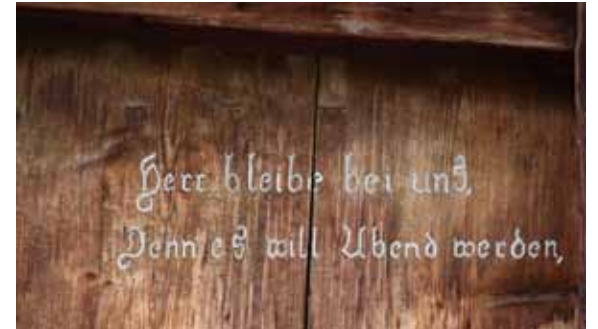 Herr bleibe bei uns,
Denn es will Abend werden,